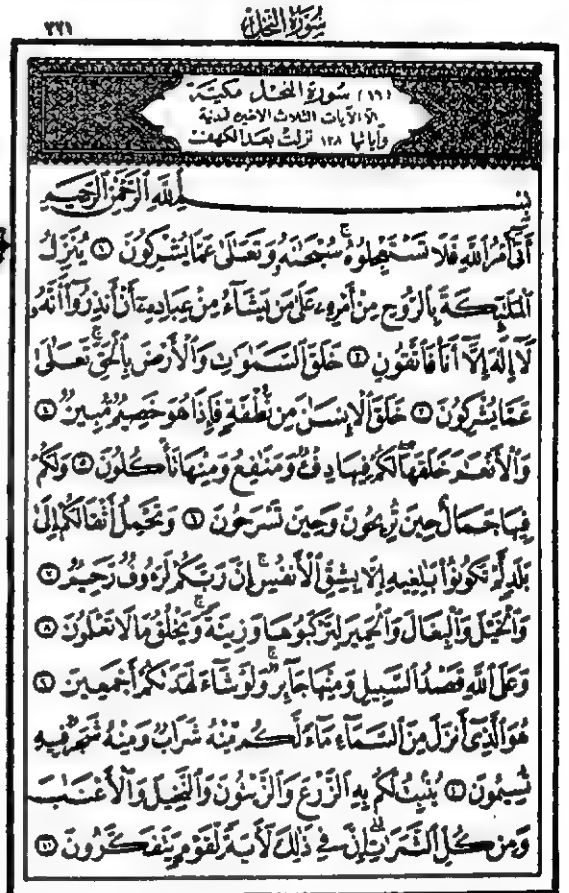 ٢٢١
سُورَةُ النَّحْلِ
(١٦) سورة النحل مكية
إلا الآيات الثلاث الأخيرة فمدنية
وآياتها ١٢٨ نزلت بعد الكهف
بِسْمِ ٱللَّهِ ٱلرَّحْمَٰنِ ٱلرَّحِيمِ
أَتَىٰٓ أَمْرُ ٱللَّهِ فَلَا تَسْتَعْجِلُوهُ ۚ سُبْحَٰنَهُۥ وَتَعَٰلَىٰ عَمَّا يُشْرِكُونَ ١ يُنَزِّلُ
ٱلْمَلَٰٓئِكَةَ بِٱلرُّوحِ مِنْ أَمْرِهِۦ عَلَىٰ مَن يَشَآءُ مِنْ عِبَادِهِۦٓ أَنْ أَنذِرُوٓا۟ أَنَّهُۥ
لَآ إِلَٰهَ إِلَّآ أَنَا۠ فَٱتَّقُونِ ٢ خَلَقَ ٱلسَّمَٰوَٰتِ وَٱلْأَرْضَ بِٱلْحَقِّ ۚ تَعَٰلَىٰ
عَمَّا يُشْرِكُونَ ٣ خَلَقَ ٱلْإِنسَٰنَ مِن نُّطْفَةٍ فَإِذَا هُوَ خَصِيمٌ مُّبِينٌ ٤
وَٱلْأَنْعَٰمَ خَلَقَهَا ۗ لَكُمْ فِيهَا دِفْءٌ وَمَنَٰفِعُ وَمِنْهَا تَأْكُلُونَ ٥ وَلَكُمْ
فِيهَا جَمَالٌ حِينَ تُرِيحُونَ وَحِينَ تَسْرَحُونَ ٦ وَتَحْمِلُ أَثْقَالَكُمْ إِلَىٰ
بَلَدٍ لَّمْ تَكُونُوا۟ بَٰلِغِيهِ إِلَّا بِشِقِّ ٱلْأَنفُسِ ۚ إِنَّ رَبَّكُمْ لَرَءُوفٌ رَّحِيمٌ ٧
وَٱلْخَيْلَ وَٱلْبِغَالَ وَٱلْحَمِيرَ لِتَرْكَبُوهَا وَزِينَةً ۚ وَيَخْلُقُ مَا لَا تَعْلَمُونَ ٨
وَعَلَى ٱللَّهِ قَصْدُ ٱلسَّبِيلِ وَمِنْهَا جَآئِرٌ ۚ وَلَوْ شَآءَ لَهَدَىٰكُمْ أَجْمَعِينَ ٩
هُوَ ٱلَّذِىٓ أَنزَلَ مِنَ ٱلسَّمَآءِ مَآءً ۖ لَّكُم مِّنْهُ شَرَابٌ وَمِنْهُ شَجَرٌ فِيهِ
تُسِيمُونَ ١٠ يُنۢبِتُ لَكُم بِهِ ٱلزَّرْعَ وَٱلزَّيْتُونَ وَٱلنَّخِيلَ وَٱلْأَعْنَٰبَ
وَمِن كُلِّ ٱلثَّمَرَٰتِ ۗ إِنَّ فِى ذَٰلِكَ لَءَايَةً لِّقَوْمٍ يَتَفَكَّرُونَ ١١